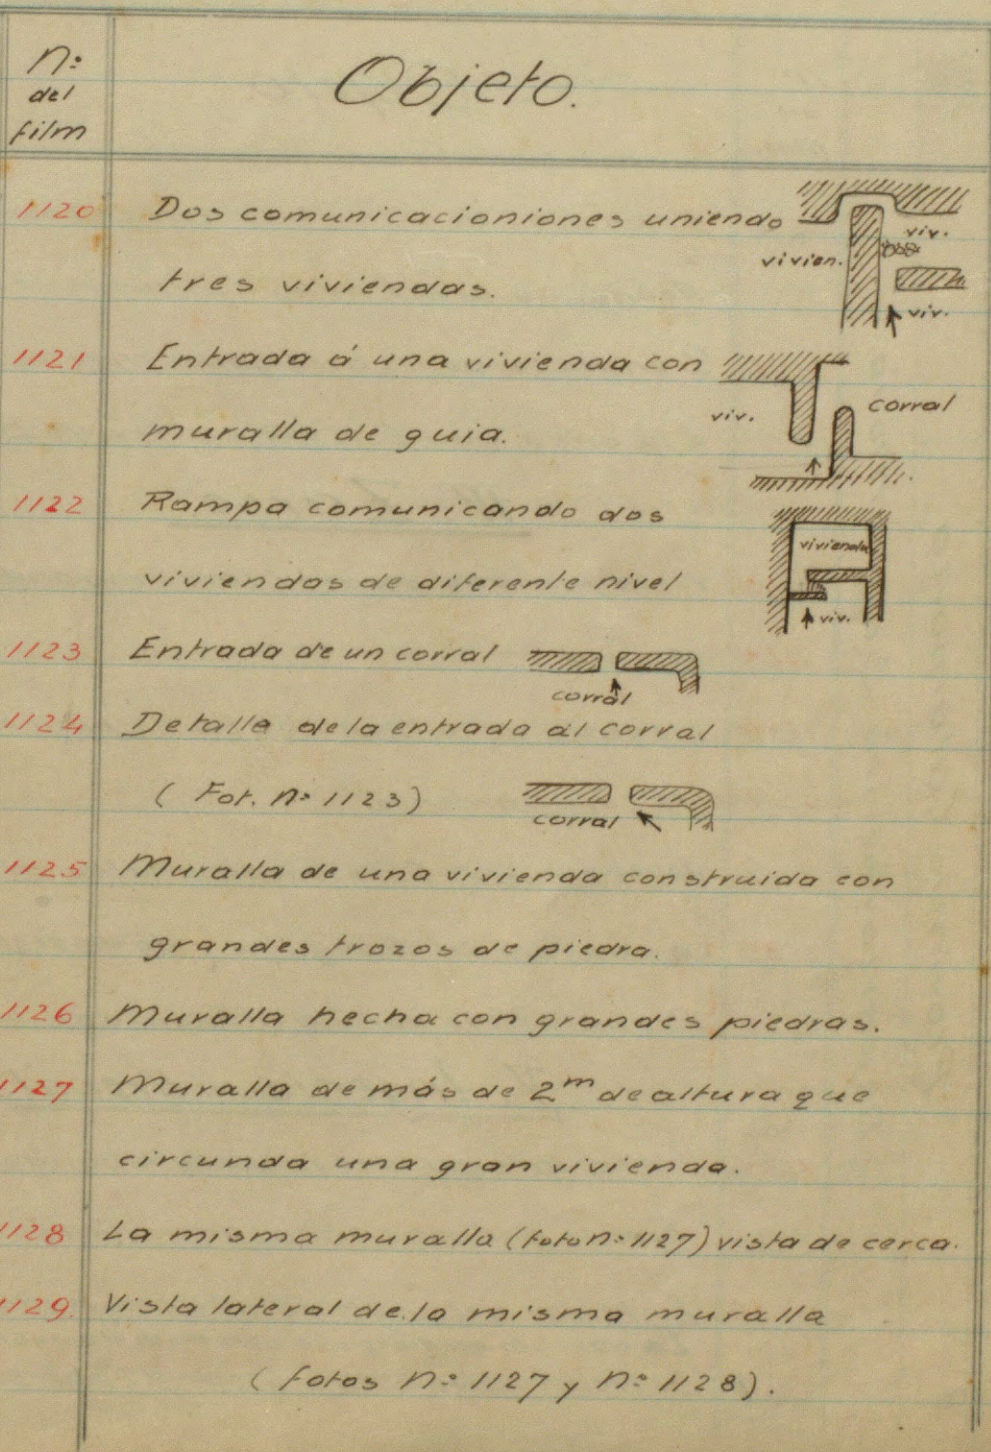 nº
del
film
Objeto.
1120 Dos comunicacioniones uniendo
viv.
vivien.
tres viviendas.
viv.
1121 Entrada á una vivienda con
viv. corral
muralla de guia.
1122 Rampa comunicando dos
vivienda
viviendas de diferente nivel
viv.
1123 Entrada de un corral
corral
1124 Detalle de la entrada al corral
(Fot. nº 1123)
corral
1125 Muralla de una vivienda construida con
grandes trozos de piedra.
1126 Muralla hecha con grandes piedras.
1127 Muralla de más de 2m de altura que
circunda una gran vivienda.
1128 La misma muralla (foto nº 1127) vista de cerca.
1129. Vista lateral de la misma muralla
(fotos nº 1127 y nº 1128).